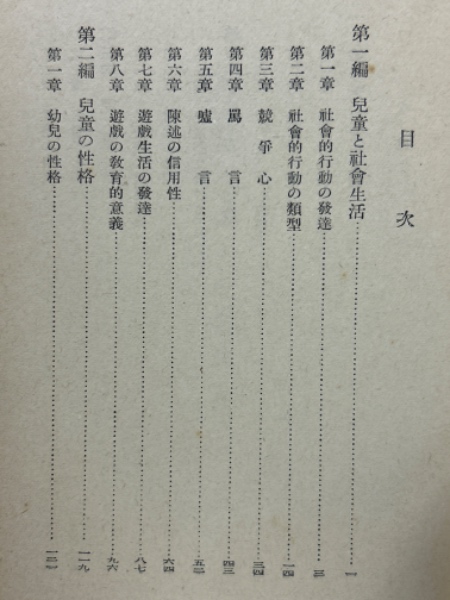 目次
第一編 兒童と社會生活……一
第一章 社會的行動の發達……三
第二章 社會的行動の類型……一四
第三章 競爭心……三四
第四章 罵言……四三
第五章 嘘言……五二
第六章 陳述の信用性……六四
第七章 遊戲生活の發達……八七
第八章 遊戲の敎育的意義……九六
第二編 兒童の性格……一一九
第一章 幼兒の性格……一二一